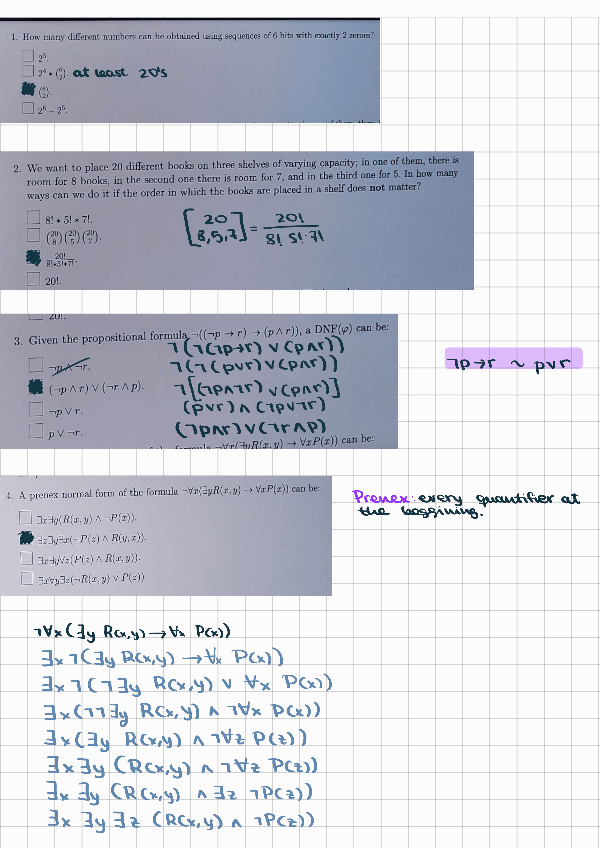 1. How many different numbers can be obtained using sequences of 6 bits with exactly 2 zeroes?
2⁵.
2⁴ * (⁶₂). at least 2 0's
(⁶₂).
2⁶ − 2⁵.
2. We want to place 20 different books on three shelves of varying capacity; in one of them, there is
room for 8 books, in the second one there is room for 7, and in the third one for 5. In how many
ways can we do it if the order in which the books are placed in a shelf does not matter?
8! * 5! * 7!.
(20 8)(20 5)(20 7).
[20 8,5,7] = 20! / 8! 5!·7!
20! / 8!*5!*7!.
20!.
20!.
3. Given the propositional formula ¬((¬p → r) → (p ∧ r)), a DNF(φ) can be:
¬(¬(¬p→r) ∨ (p∧r))
¬p ∧ ¬r.
¬(¬(p∨r) ∨ (p∧r))
¬p→r ~ p∨r
(¬p ∧ r) ∨ (¬r ∧ p).
¬[(¬p∧¬r) ∨ (p∧r)]
¬p ∨ r.
(p∨r) ∧ (¬p∨¬r)
p ∨ ¬r.
(¬p∧r) ∨ (¬r∧p)
formula ¬∀x(∃yR(x, y) → ∀xP(x)) can be:
4. A prenex normal form of the formula ¬∀x(∃yR(x, y) → ∀xP(x)) can be:
Prenex: every quantifier at
the beggining.
∃x∃y(R(x, y) ∧ ¬P(x)).
∃z∃y∃x(¬P(z) ∧ R(y, x)).
∃x∃y∀z(P(z) ∧ R(x, y)).
∃x∀y∃z(¬R(x, y) ∨ P(z)).
¬∀x(∃y R(x,y) → ∀x P(x))
∃x ¬(∃y R(x,y) → ∀x P(x))
∃x ¬(¬∃y R(x,y) ∨ ∀x P(x))
∃x(¬¬∃y R(x,y) ∧ ¬∀x P(x))
∃x(∃y R(x,y) ∧ ¬∀z P(z))
∃x∃y (R(x,y) ∧ ¬∀z P(z))
∃x ∃y (R(x,y) ∧ ∃z ¬P(z))
∃x ∃y ∃z (R(x,y) ∧ ¬P(z))